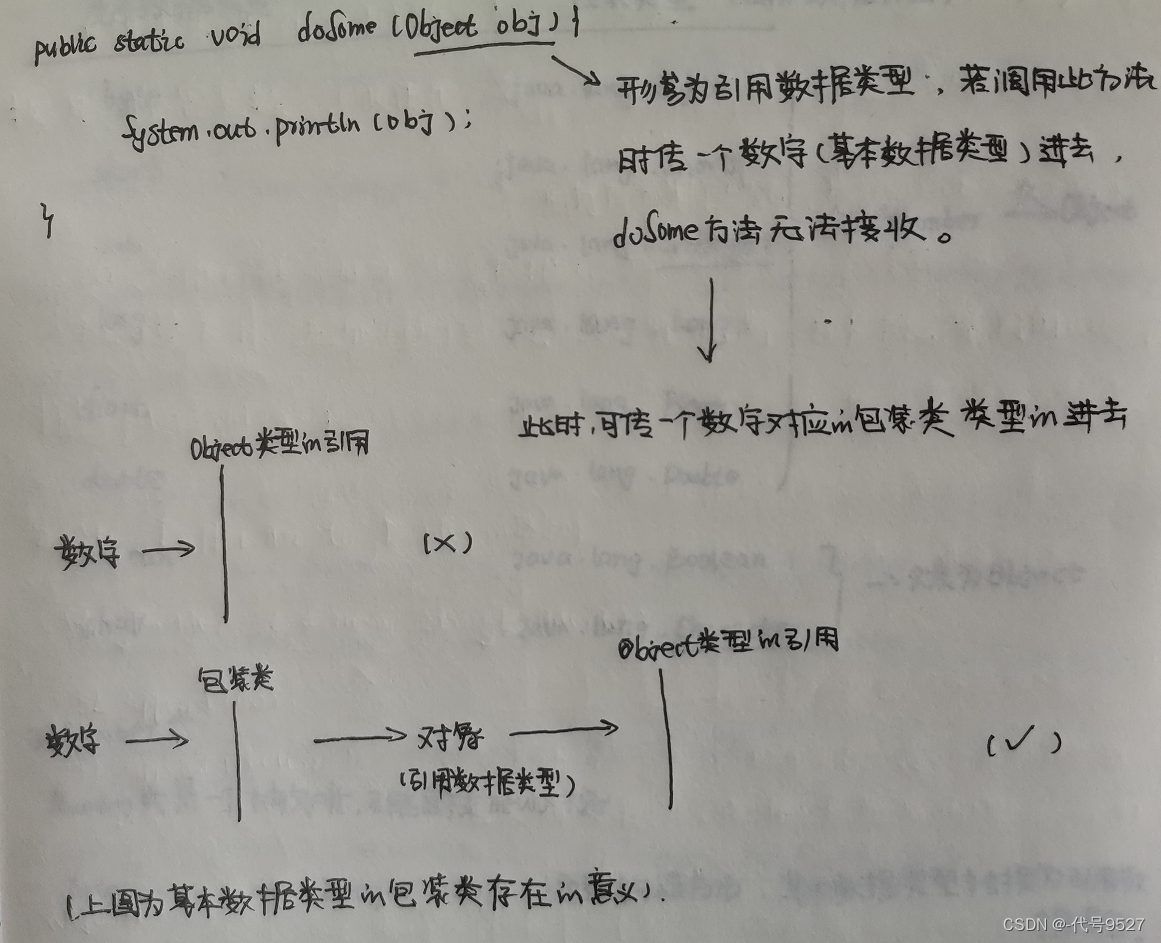 public static void doSome (Object obj) {
形参为引用数据类型，若调用此方法
System.out.println (obj);
时传一个数字(基本数据类型)进去，
}
doSome方法无法接收。
此时，可传一个数字对应的包装类类型的进去
Object类型的引用
数字 → (×)
Object类型的引用
包装类
数字 → → 对象 → (✓)
(引用数据类型)
(上图为基本数据类型的包装类存在的意义).
CSDN @-代号9527